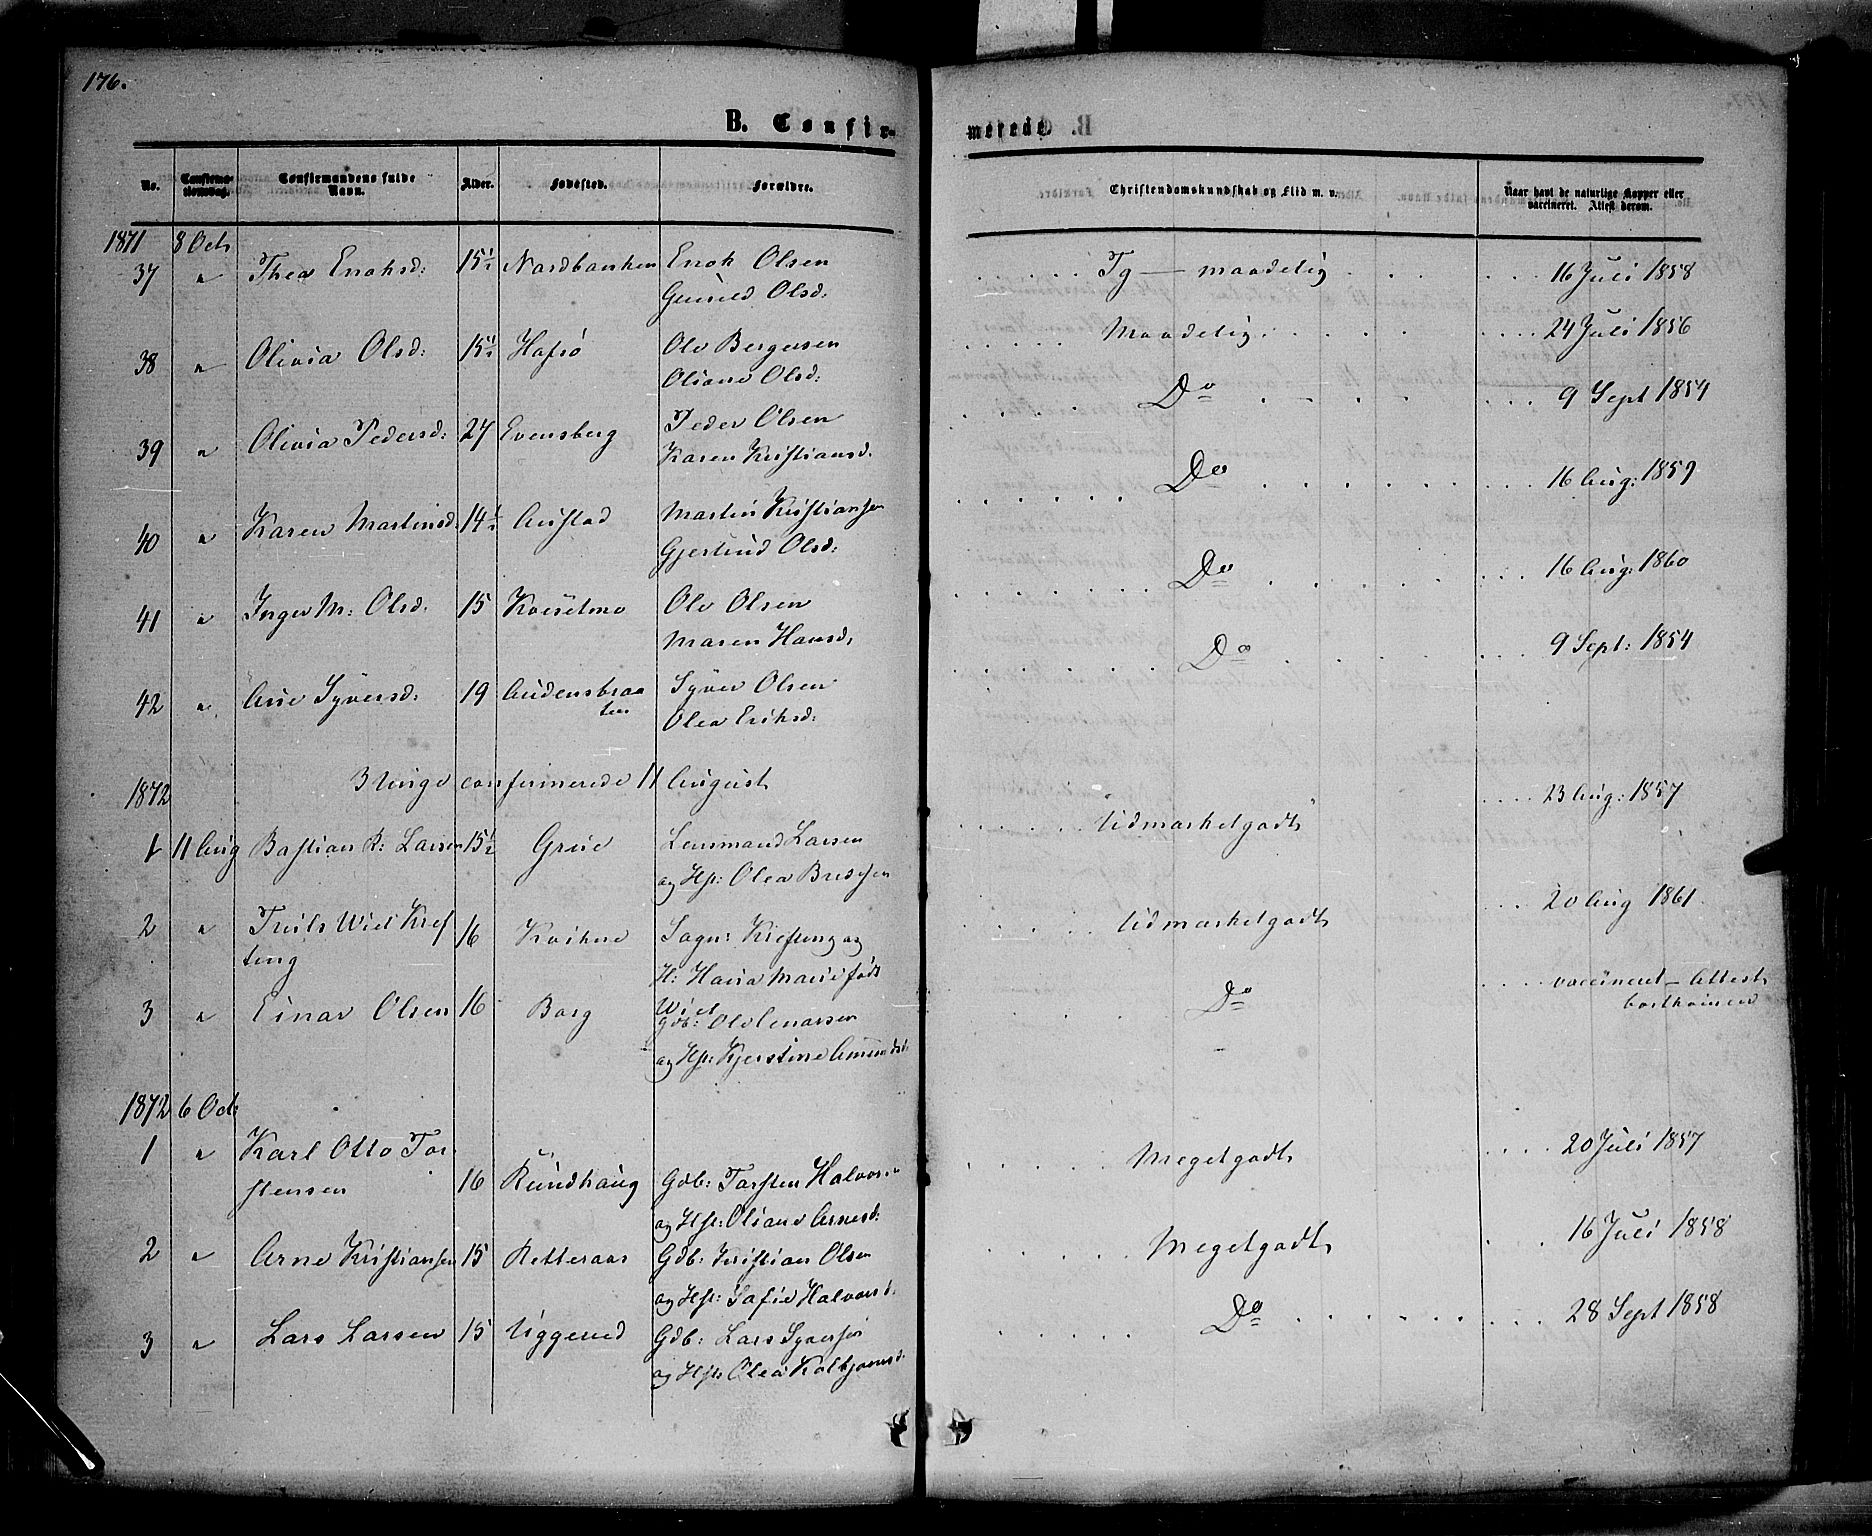 176.
B. Confir-
merede
No.
Confirma-
tionsdag.
Confirmandens fulde
Navn.
Alder.
Fødested.
Forældre.
Christendomskundskab og Flid m. v.
Naar havt de naturlige Kopper eller
vaccineret. Attest derom.
1871 8 Octr
37 " Thea Enoksd: 15½ Nordbanken Enok Olsen Tg — maadelig 16 Juli 1858
Gunild Olsd:
38 " Olivia Olsd: 15½ Hafsø Ole Bergersen Maadelig 24 Juli 1856
Oliane Olsd:
39 " Olivia Pedersd: 27 Evensberg Peder Olsen Do 9 Sept 1854
Karen Kristiansd.
40 " Karen Martinsd: 14½ Austad Martin Kristiansen Do 16 Aug: 1859
Gjertrud Olsd:
41 " Inger M: Olsd. 15 Kviselmo Ole Olsen Do 16 Aug: 1860
Maren Hansd.
42 " Ane Syversd: 19 Audensbraa Syver Olsen Do 9 Sept: 1854
ten Olea Eriksd:
1872 3 Unge confirmerede 11 August
1 11 Aug Bastian R: Larsen 15½ Grue Lensmand Larsen Udmærketgodt 23 Aug: 1857
og Hst: Olea Bredesen
2 " Truls Wiel Kref 16 Kvikne Sogn: Krefting og Udmærketgodt 20 Aug 1861
ting H: Hansa Marie født
Wiel
3 " Einar Olsen 16 Borg Gdb: Ole Enarsen Do vaccineret – Attest
og Hst: Kjerstine Amundsd: bortkommen
1872 6 Octr
1 " Karl Otto Tor
stensen 16 Rundhaug Gdb: Torsten Halvors. Megetgodt 20 Juli 1857
og Hst: Oliane Arnesd:
2 " Arne Kristiansen 15 Retteraas Gdb: Kristian Olsen Megetgodt 16 Juli 1858
og Hst: Sofie Halvorsd.
3 " Lars Larsen 15 Uggerud Gdb: Lars Syversen Do 28 Sept 1858
og Hst: Olea Kolbjørnsd.